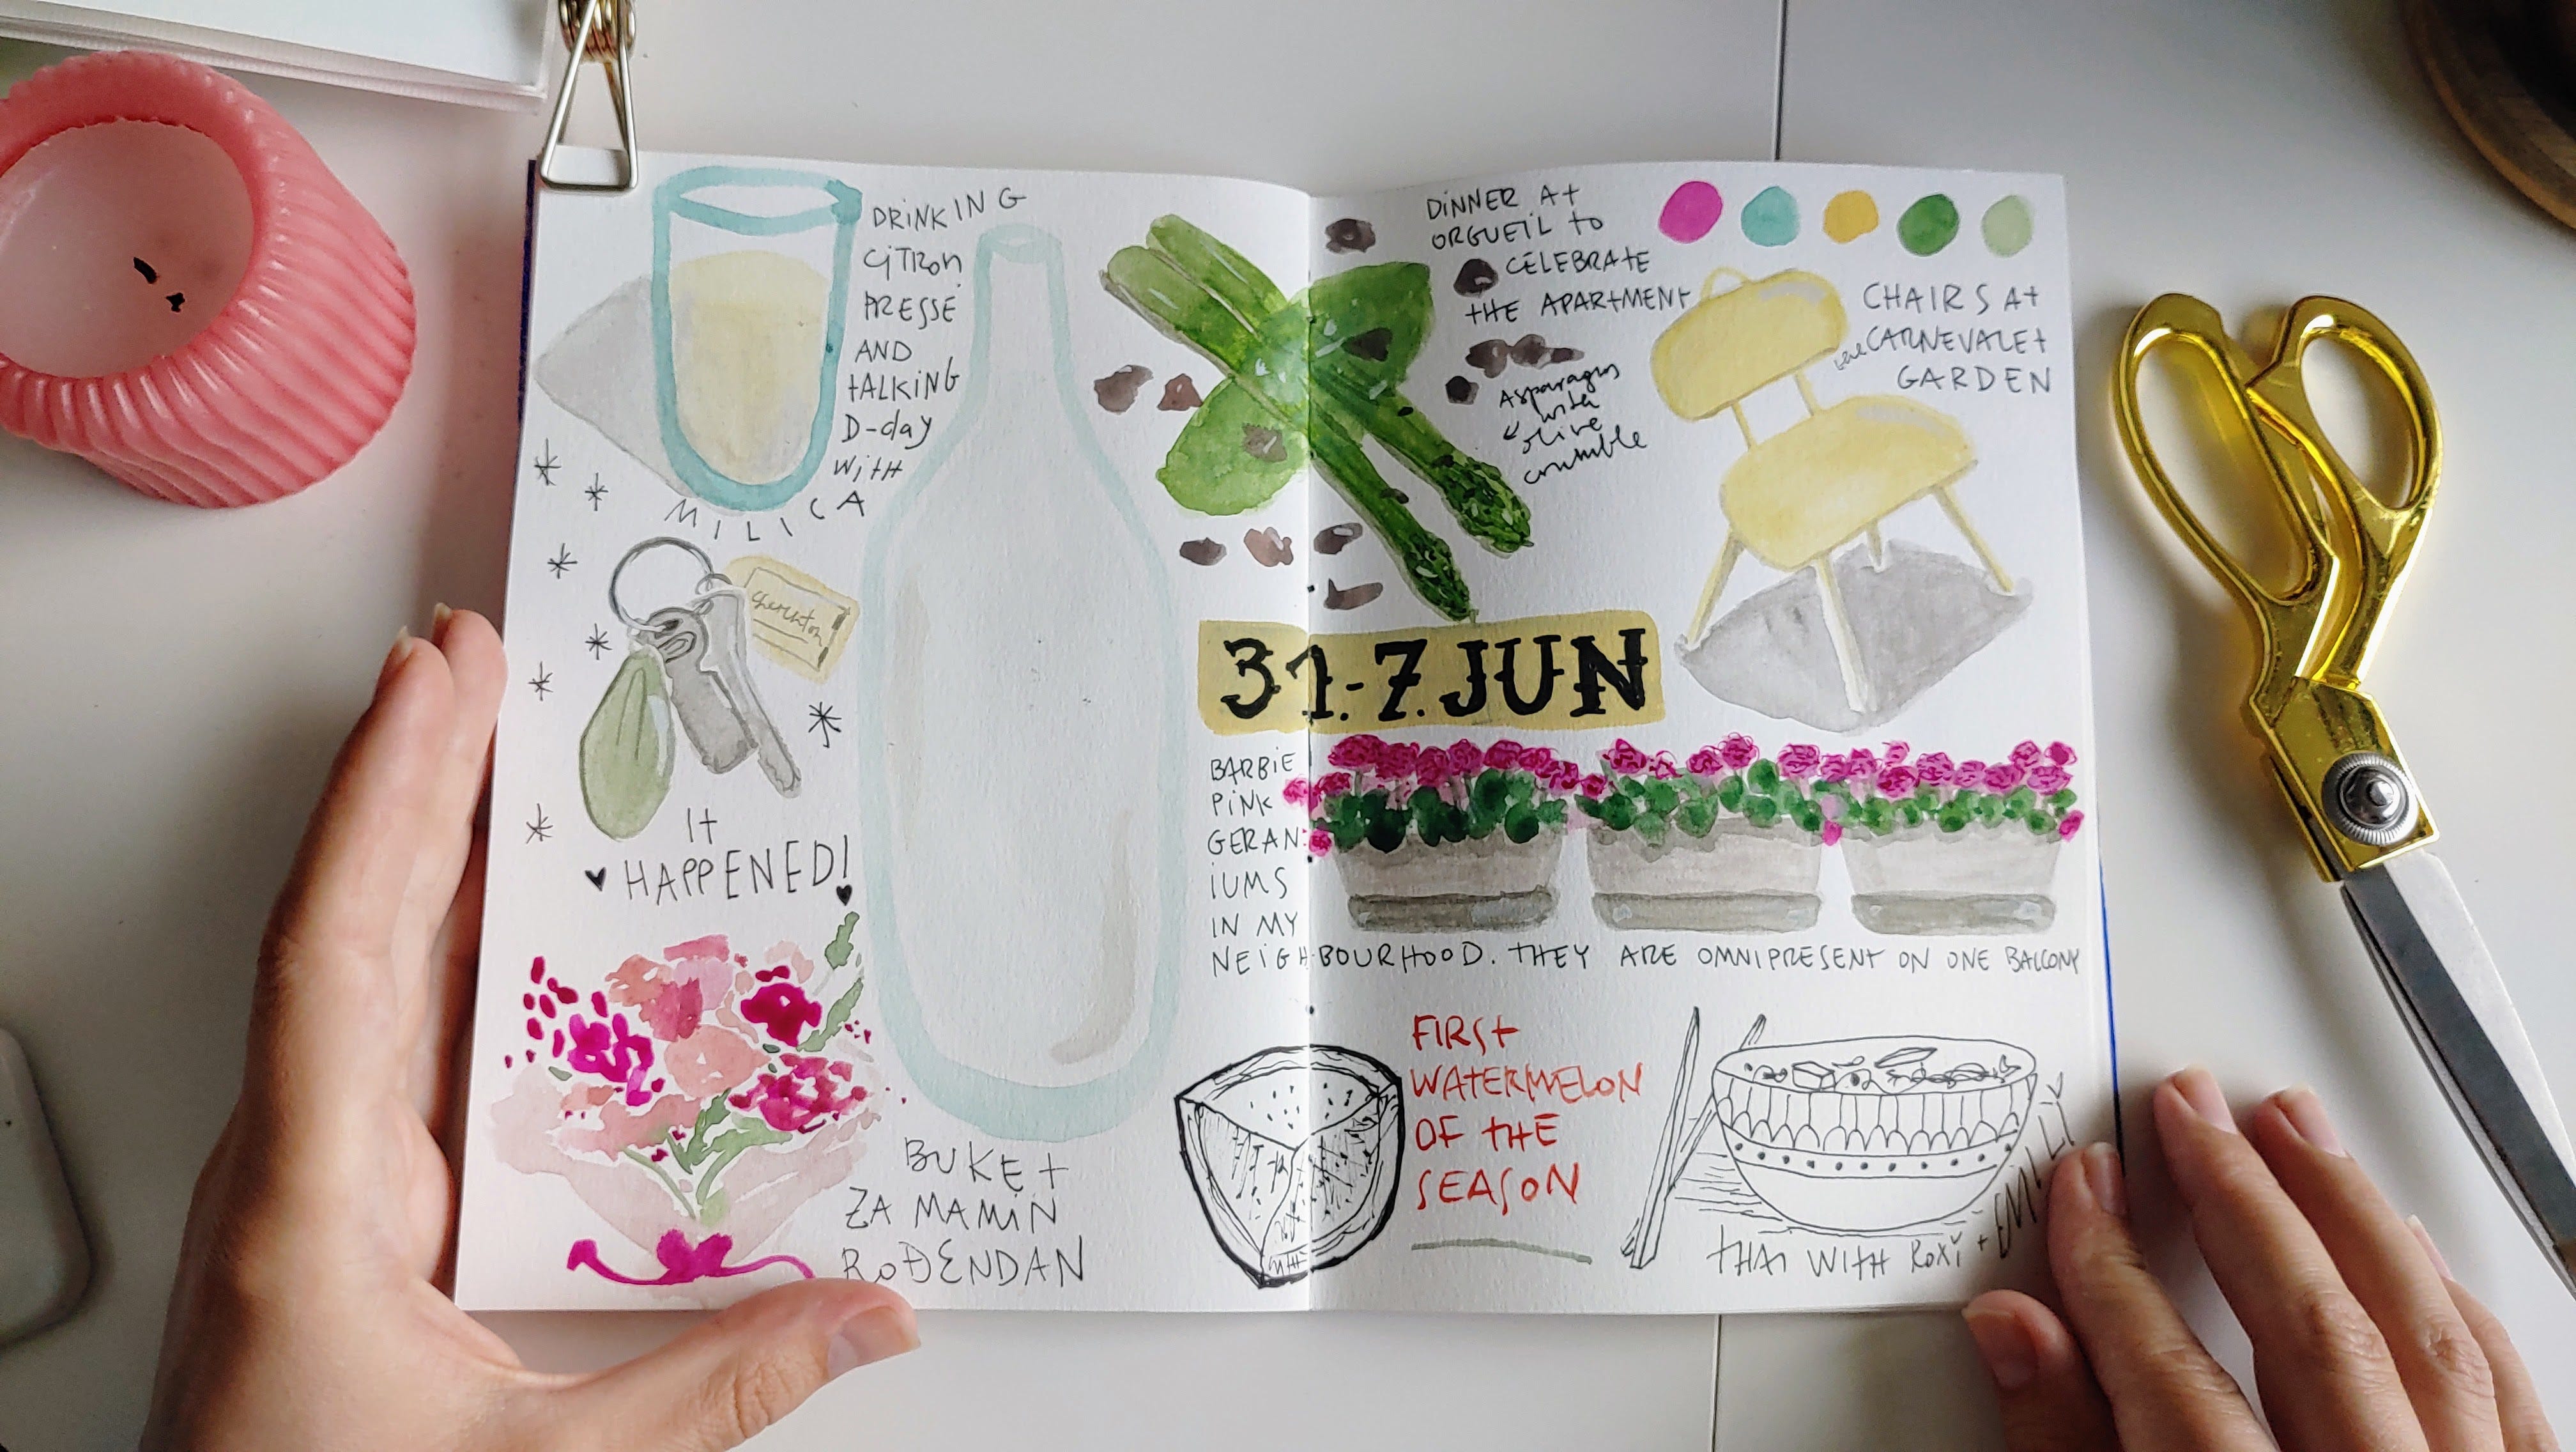 DRINKING
CITRON
PRESSÉ
AND
TALKING
D-day
WITH
MILICA
IT
HAPPENED!
BUKET
ZA MAMIN
ROĐENDAN
DINNER AT
ORGUEIL TO
CELEBRATE
THE APARTMENT
Asparagus
with
olive
crumble
CHAIRS AT
CARNEVALET
GARDEN
31.-7. JUN
BARBIE
PINK
GERAN
IUMS
IN MY
NEIGHBOURHOOD. THEY ARE OMNIPRESENT ON ONE BALCONY
FIRST
WATERMELON
OF THE
SEASON
THAI WITH ROXI + EMILY